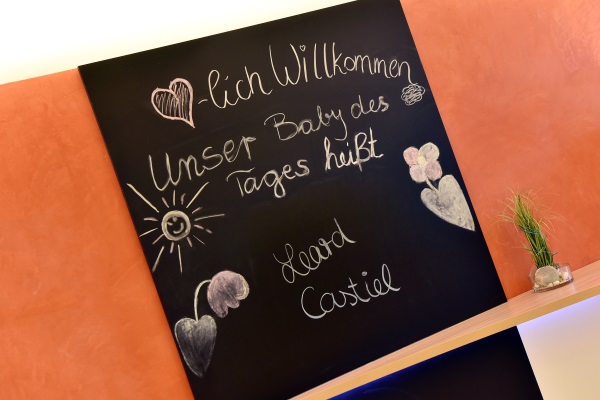 -lich Willkommen
Unser Baby des
Tages heißt
Leard
Castiel